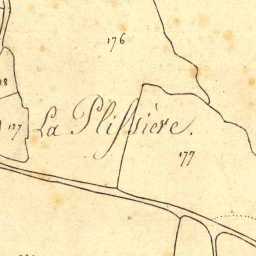 176
La Plissière.
177